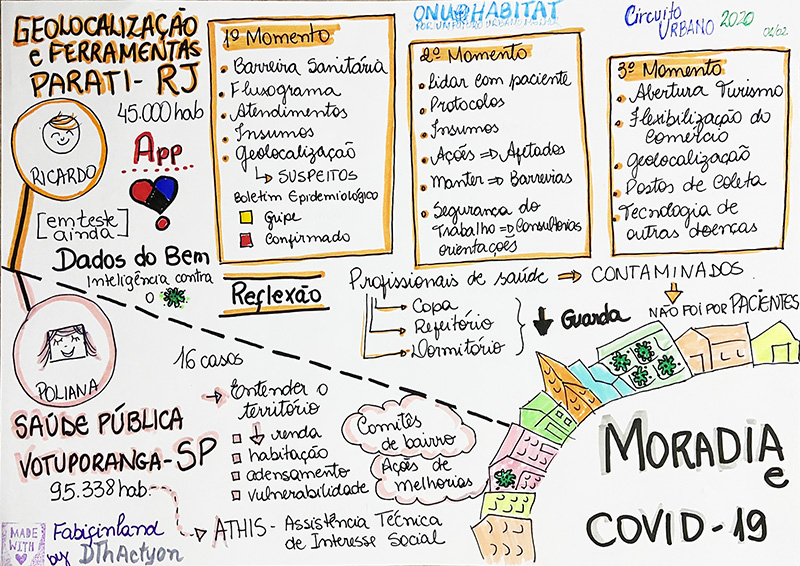 GEOLOCALIZAÇÃO
e FERRAMENTAS
PARATI - RJ
45.000 hab
RICARDO
App
[em teste
ainda]
Dados do Bem
Inteligência contra
o
1º Momento
Barreira Sanitária
Fluxograma
Atendimentos
Insumos
Geolocalização
↳ SUSPEITOS
Boletim Epidemiológico
Gripe
Confirmado
ONU HABITAT
POR UM FUTURO URBANO MELHOR
2º Momento
Lidar com paciente
Protocolos
Insumos
Ações ⇒ Afetados
Manter ⇒ Barreiras
Segurança do
Trabalho ⇒ Consultorias
orientações
Circuito
URBANO 2020
3º Momento
Abertura Turismo
Flexibilização do
Comércio
Geolocalização
Postos de Coleta
Tecnologia de
outras doenças
Reflexão
Profissionais de saúde ⇒ CONTAMINADOS
NÃO FOI POR PACIENTES
→ Copa
→ Refeitório
→ Dormitório
Guarda
POLIANA
SAÚDE PÚBLICA
VOTUPORANGA - SP
95.338 hab
16 casos
→ Entender o
território
renda
habitação
adensamento
vulnerabilidade
Comitês
de bairro
Ações de
melhorias
ATHIS - Assistência Técnica
de Interesse Social
MORADIA
e
COVID-19
MADE
WITH
by
Fabicinland
DThActyon